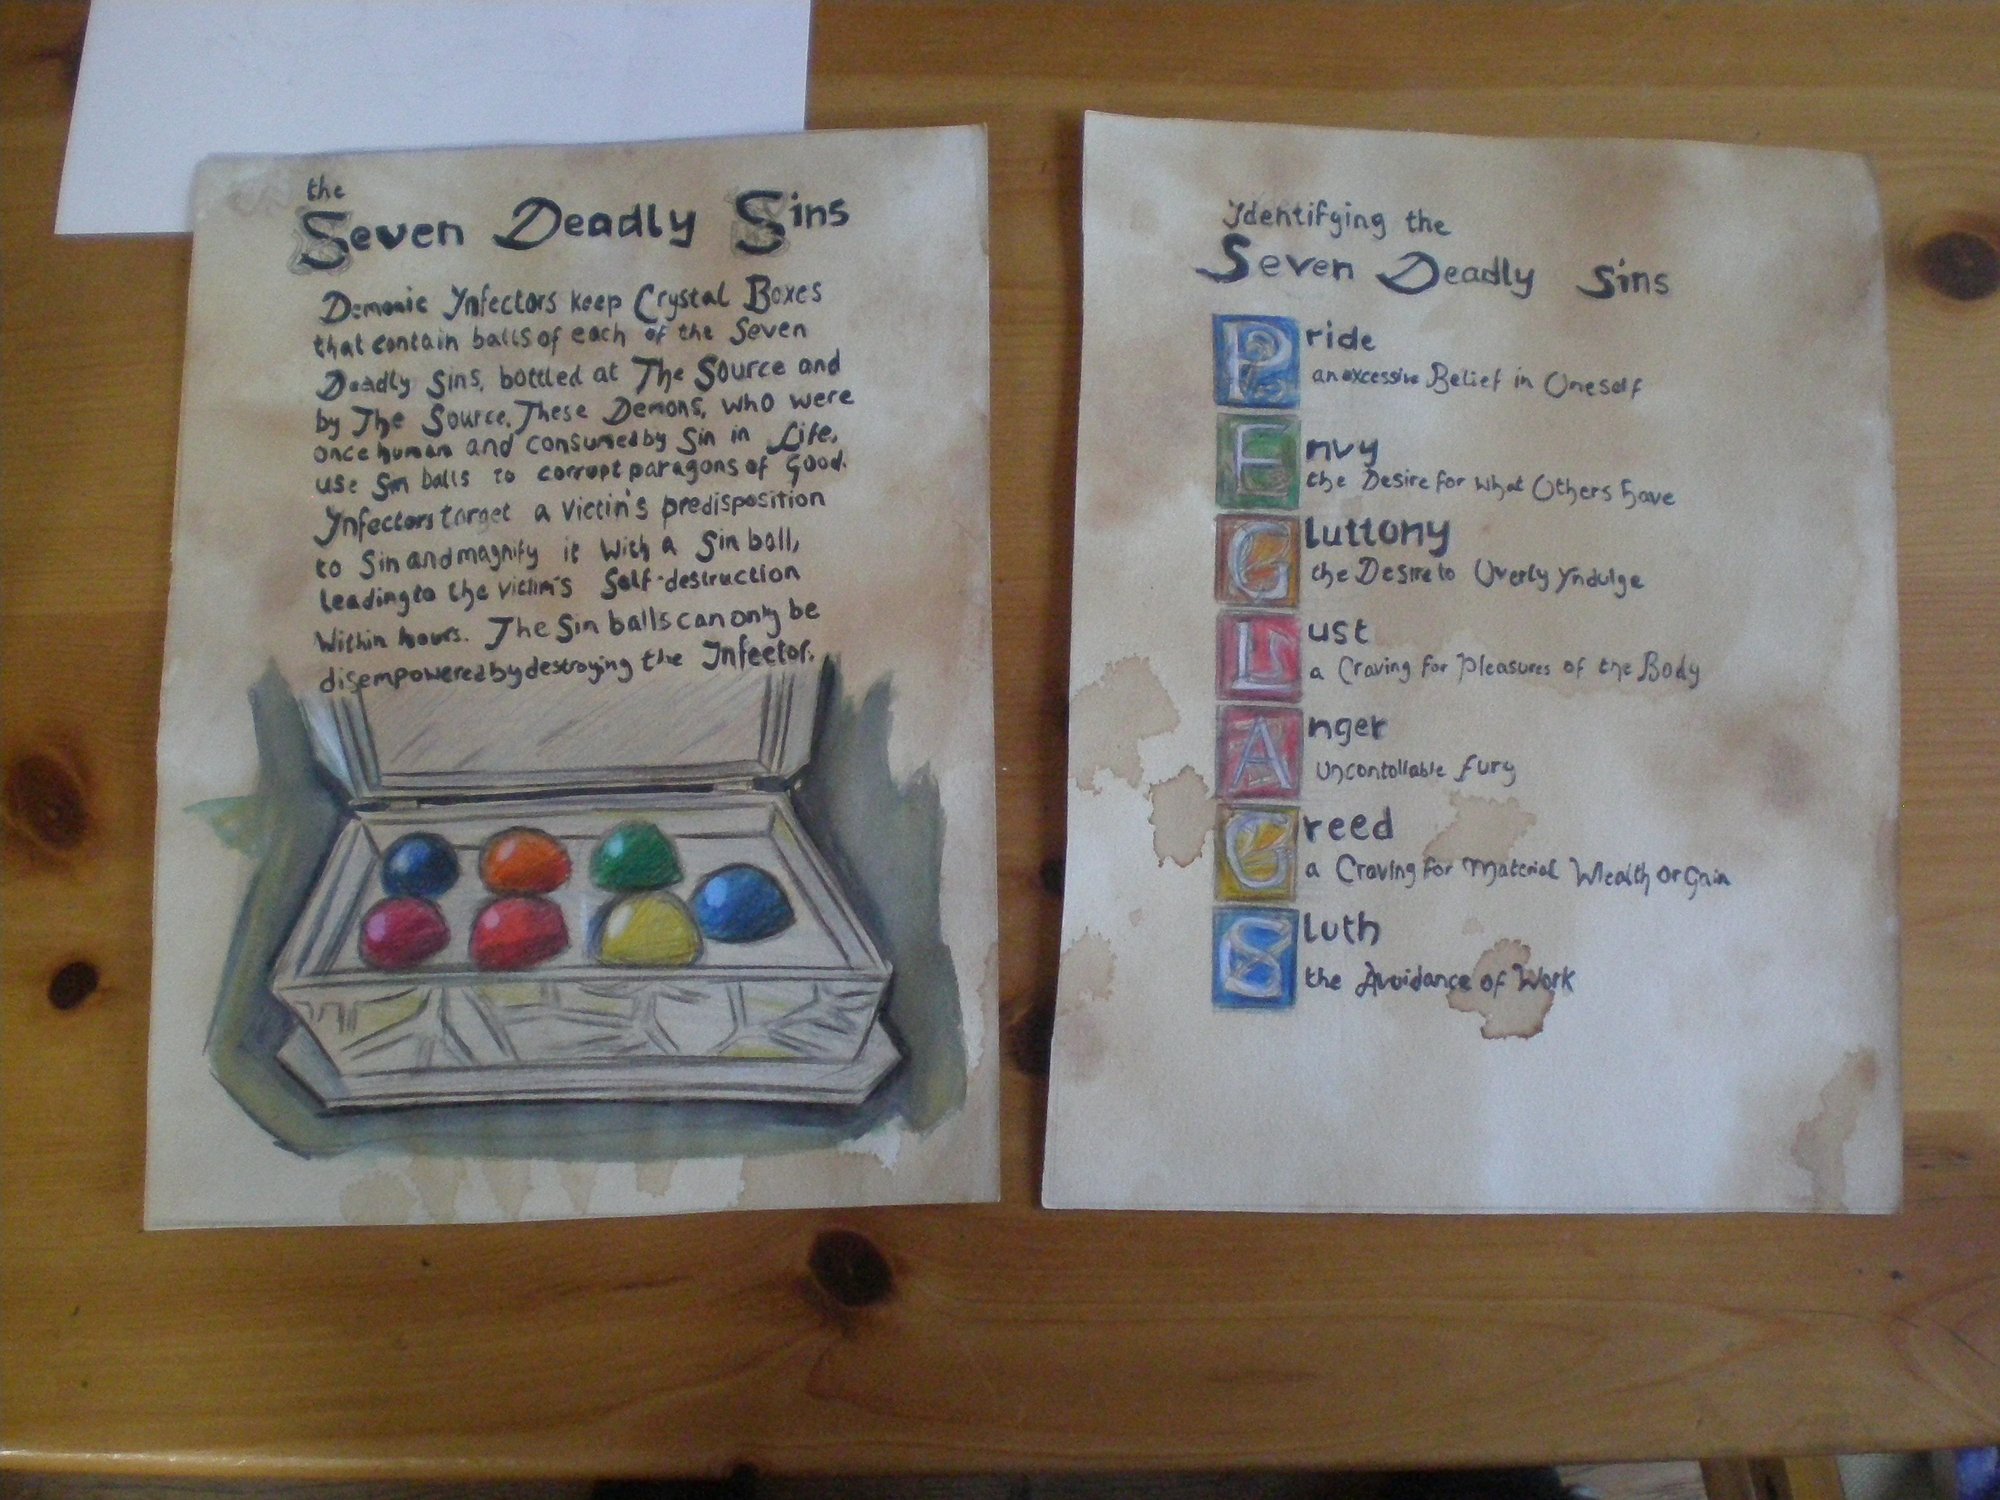 the
Seven Deadly Sins
Demonic Infectors keep Crystal Boxes
that contain balls of each of the Seven
Deadly Sins, bottled at The Source and
by The Source. These Demons, who were
once human and consumed by Sin in Life,
use Sin balls to corrupt paragons of Good.
Infectors target a victin's predisposition
to Sin and magnify it with a Sin ball,
leading to the victim's Self-destruction
within hours. The Sin balls can only be
disempowered by destroying the Infector.
Identifying the
Seven Deadly Sins
Pride
an excessive Belief in Oneself
Envy
the Desire for what Others have
Gluttony
the Desire to Overly Indulge
Lust
a Craving for Pleasures of the Body
Anger
Uncontollable Fury
Greed
a Craving for Material Wlealth or Gain
Sluth
the Avoidance of Work